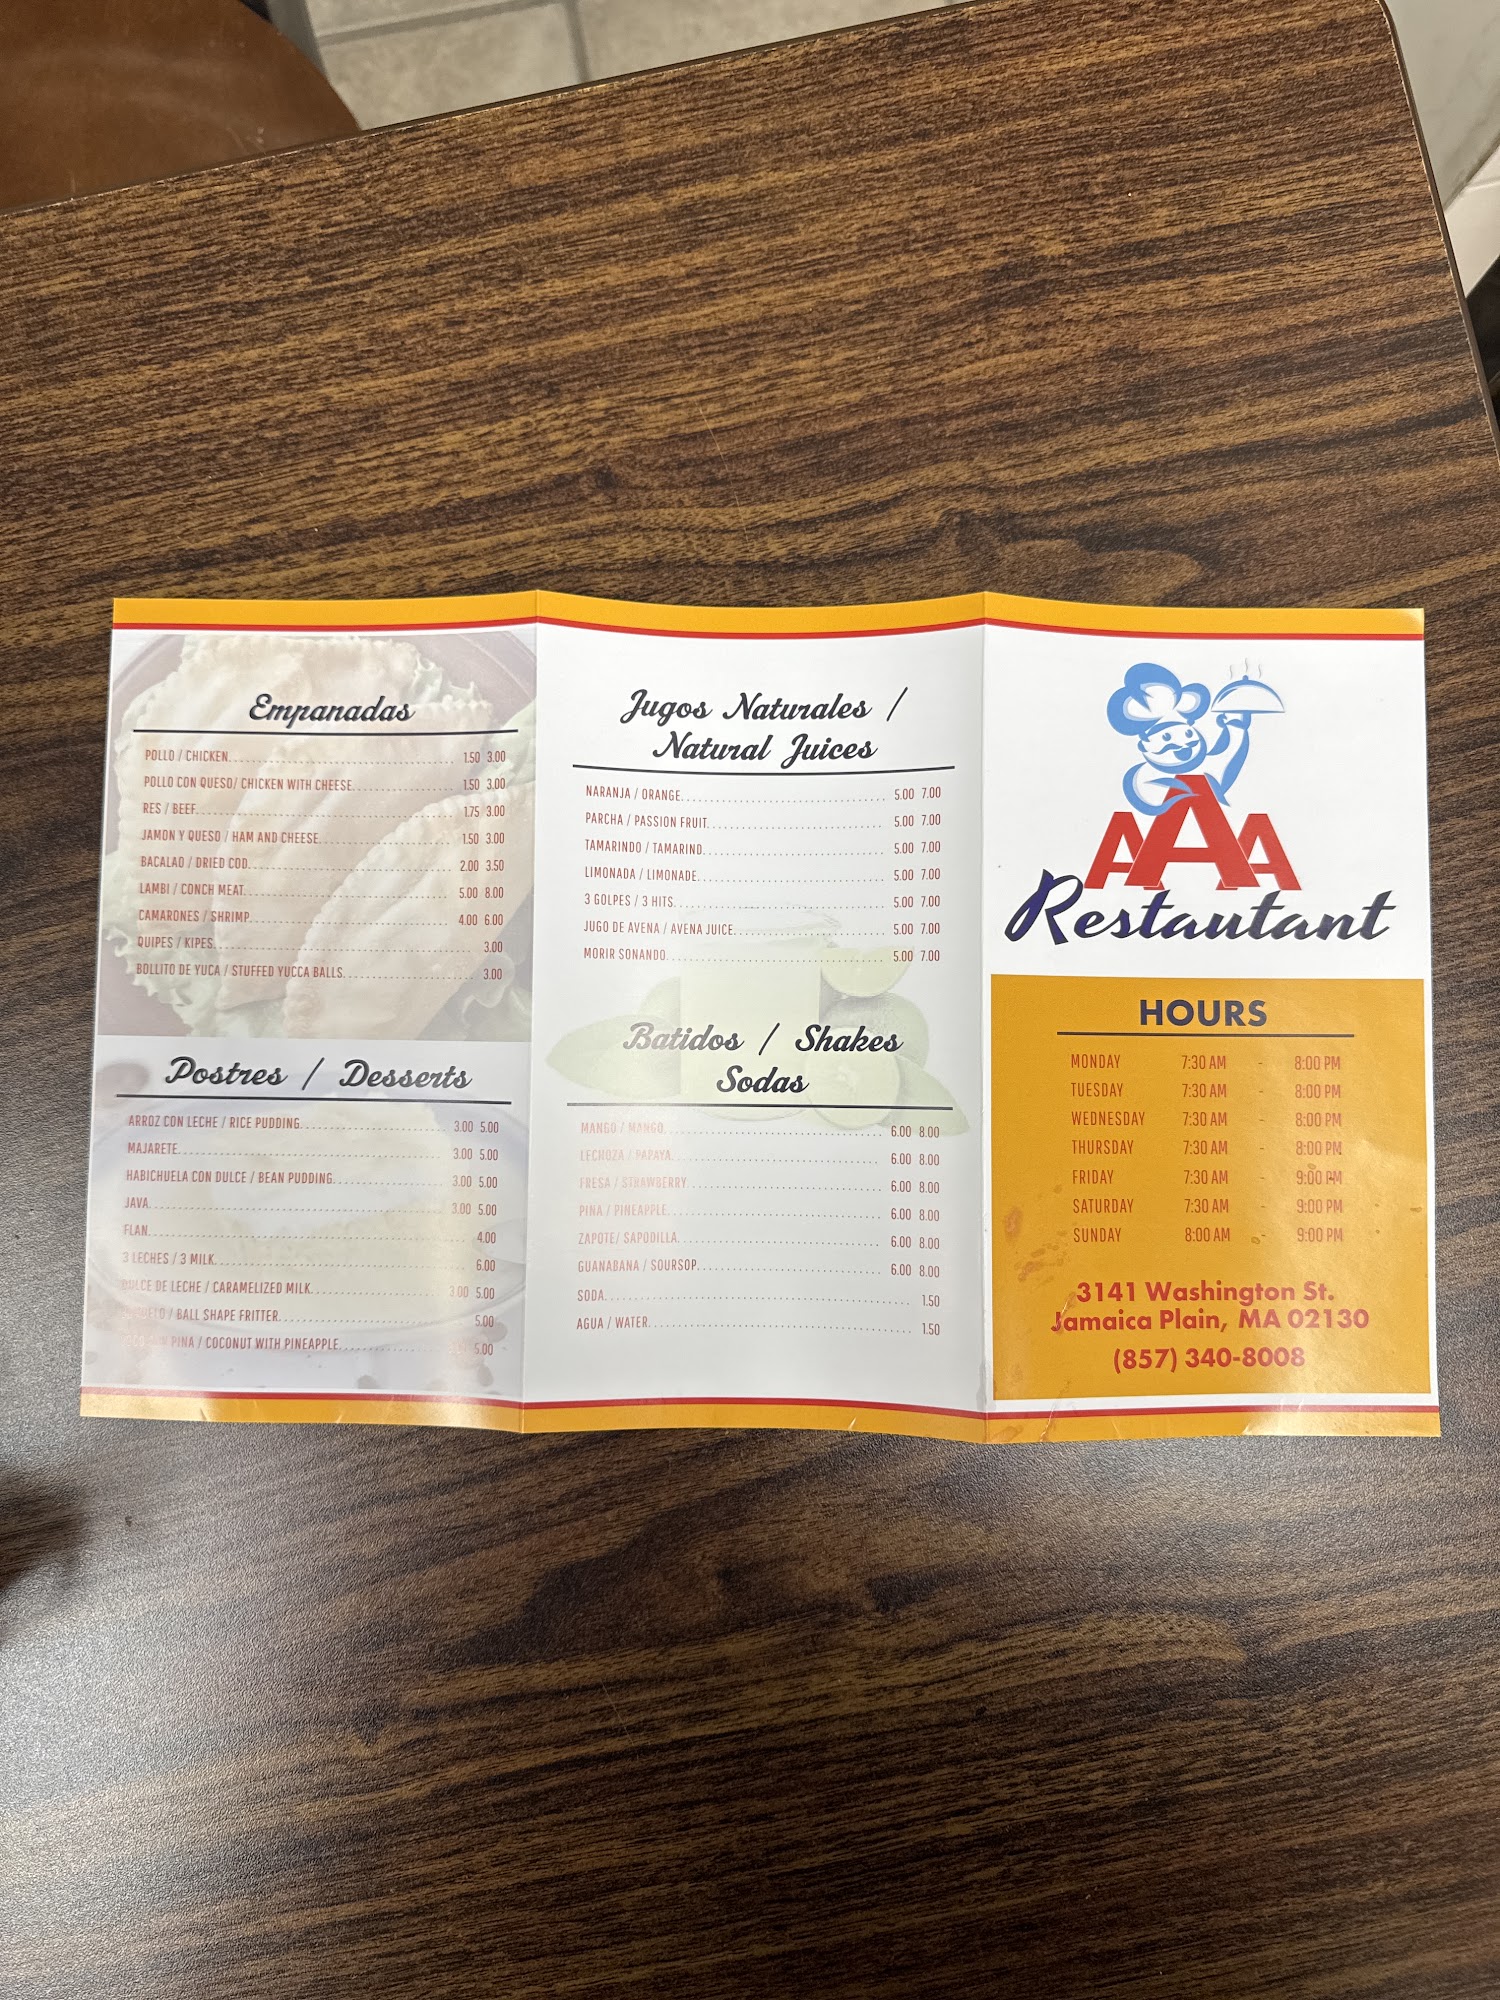 Empanadas
POLLO / CHICKEN 1.50 3.00
POLLO CON QUESO/ CHICKEN WITH CHEESE 1.50 3.00
RES / BEEF 1.75 3.00
JAMON Y QUESO / HAM AND CHEESE 1.50 3.00
BACALAO / DRIED COD 2.00 3.50
LAMBI / CONCH MEAT 5.00 8.00
CAMARONES / SHRIMP 4.00 6.00
QUIPES / KIPES 3.00
BOLLITO DE YUCA / STUFFED YUCCA BALLS 3.00
Postres / Desserts
ARROZ CON LECHE / RICE PUDDING 3.00 5.00
MAJARETE 3.00 5.00
HABICHUELA CON DULCE / BEAN PUDDING 3.00 5.00
JAVA 3.00 5.00
FLAN 4.00
3 LECHES / 3 MILK 6.00
DULCE DE LECHE / CARAMELIZED MILK 3.00 5.00
/ BALL SHAPE FRITTER 5.00
PINA / COCONUT WITH PINEAPPLE 5.00
Jugos Naturales /
Natural Juices
NARANJA / ORANGE 5.00 7.00
PARCHA / PASSION FRUIT 5.00 7.00
TAMARINDO / TAMARIND 5.00 7.00
LIMONADA / LIMONADE 5.00 7.00
3 GOLPES / 3 HITS 5.00 7.00
JUGO DE AVENA / AVENA JUICE 5.00 7.00
MORIR SONANDO 5.00 7.00
Batidos / Shakes
Sodas
MANGO / MANGO 6.00 8.00
LECHOZA / PAPAYA 6.00 8.00
FRESA / STRAWBERRY 6.00 8.00
PINA / PINEAPPLE 6.00 8.00
ZAPOTE/ SAPODILLA 6.00 8.00
GUANABANA / SOURSOP 6.00 8.00
SODA 1.50
AGUA / WATER 1.50
AAA
Restautant
HOURS
MONDAY 7:30 AM - 8:00 PM
TUESDAY 7:30 AM - 8:00 PM
WEDNESDAY 7:30 AM - 8:00 PM
THURSDAY 7:30 AM - 8:00 PM
FRIDAY 7:30 AM - 9:00 PM
SATURDAY 7:30 AM - 9:00 PM
SUNDAY 8:00 AM - 9:00 PM
3141 Washington St.
Jamaica Plain, MA 02130
(857) 340-8008